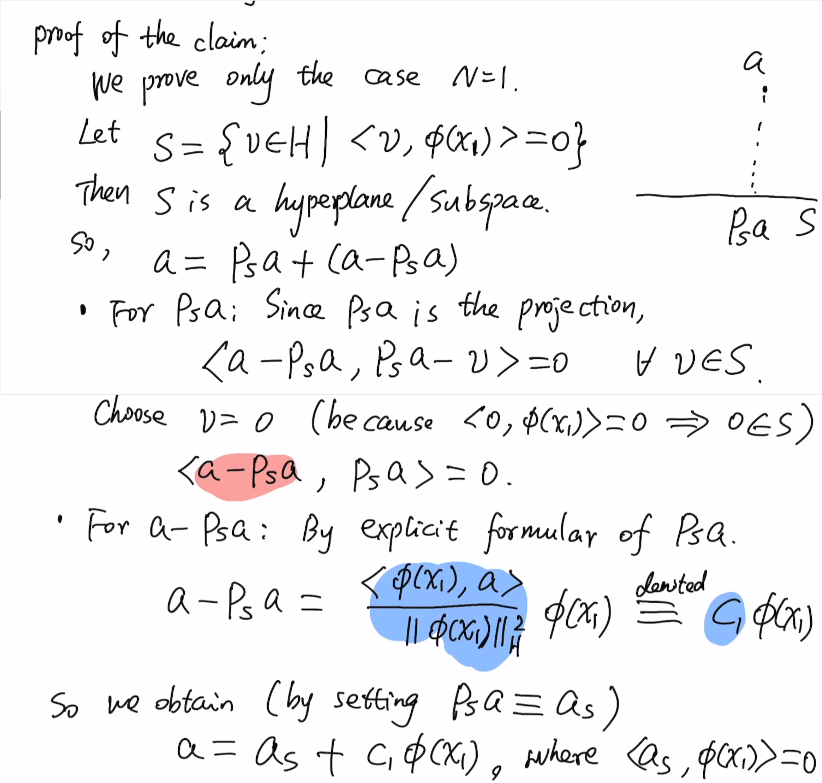 proof of the claim;
We prove only the case N=1.
a
Let S = {v∈H | <v, φ(x₁)>=0}
Then S is a hyperplane/subspace.
P_S a S
So, a = P_S a + (a-P_S a)
• For P_S a; Since P_S a is the projection,
<a-P_S a, P_S a-v>=0 ∀ v∈S.
Choose v=0 (because <0, φ(x₁)>=0 ⇒ 0∈S)
<a-P_S a, P_S a>=0.
• For a-P_S a: By explicit formular of P_S a.
a-P_S a = <φ(x₁), a> / ||φ(x₁)||²_H φ(x₁) ≡ denoted C₁ φ(x₁)
So we obtain (by setting P_S a ≡ a_S)
a = a_S + C₁ φ(x₁), where <a_S, φ(x₁)>=0